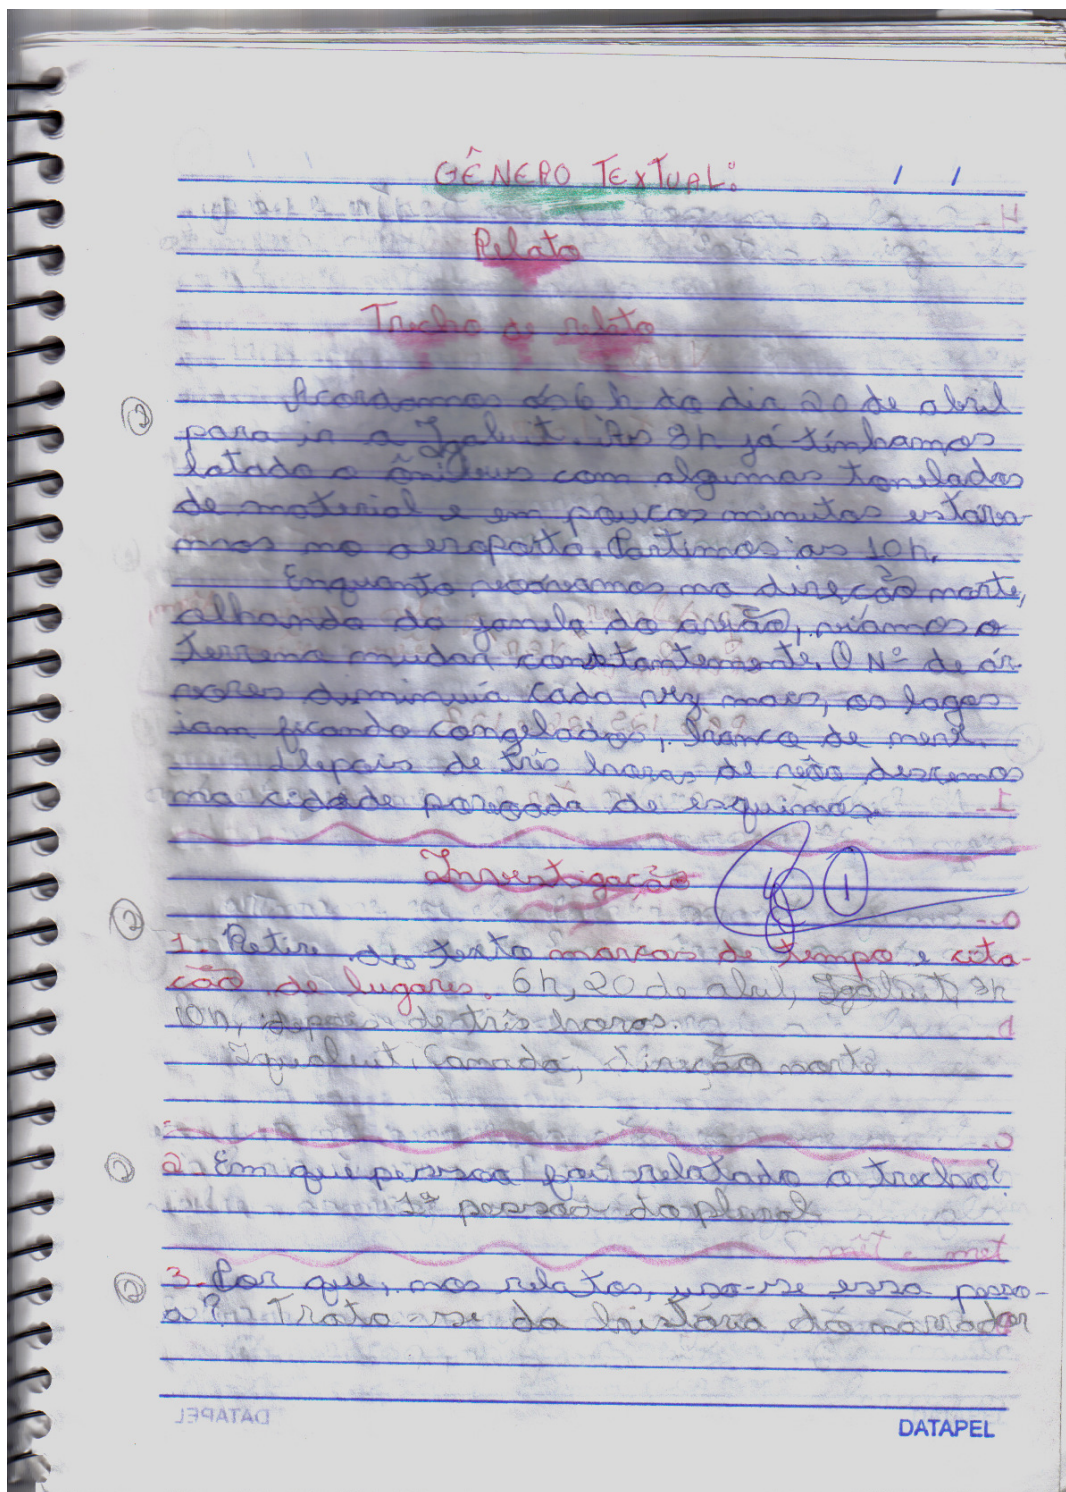 GÊNERO TEXTUAL:
Relato
Trecho de relato
Acordamos ás 6 h do dia 20 de abril
para ir a Iqaluit. Às 3h já tínhamos
lotado o ônibus com algumas toneladas
de material e em poucos minutos estáva-
mos no aeroporto. Partimos às 10h.
Enquanto voávamos na direção norte,
olhando da janela do avião, víamos o
terreno mudar constantemente. O Nº de ár-
vores diminuía cada vez mais, os lagos
iam ficando congelados, branco de neve.
Depois de três horas de vôo descemos
na cidade povoada de esquimós.
Investigação
1
1. Retire do texto marcas de tempo e cita-
ção de lugares. 6h, 20 de abril, 3h
10h, depois de três horas.
Iqualuit, Canadá, direção norte.
2. Em que pessoa foi relatado o trecho?
1ª pessoa do plural
3. Por que, nos relatos, usa-se essa pesso-
a? Trata-se da história do narrador
DATAPEL